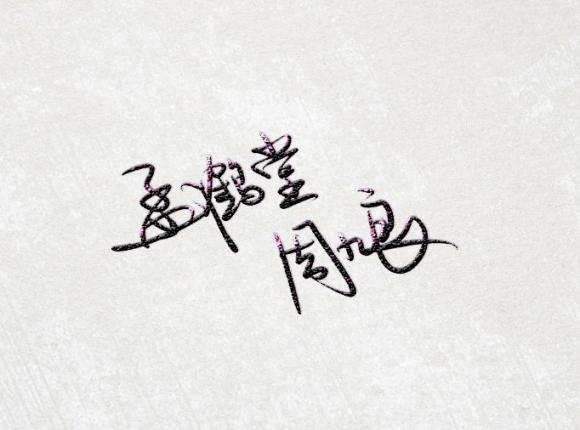 孟鹤堂
周九良